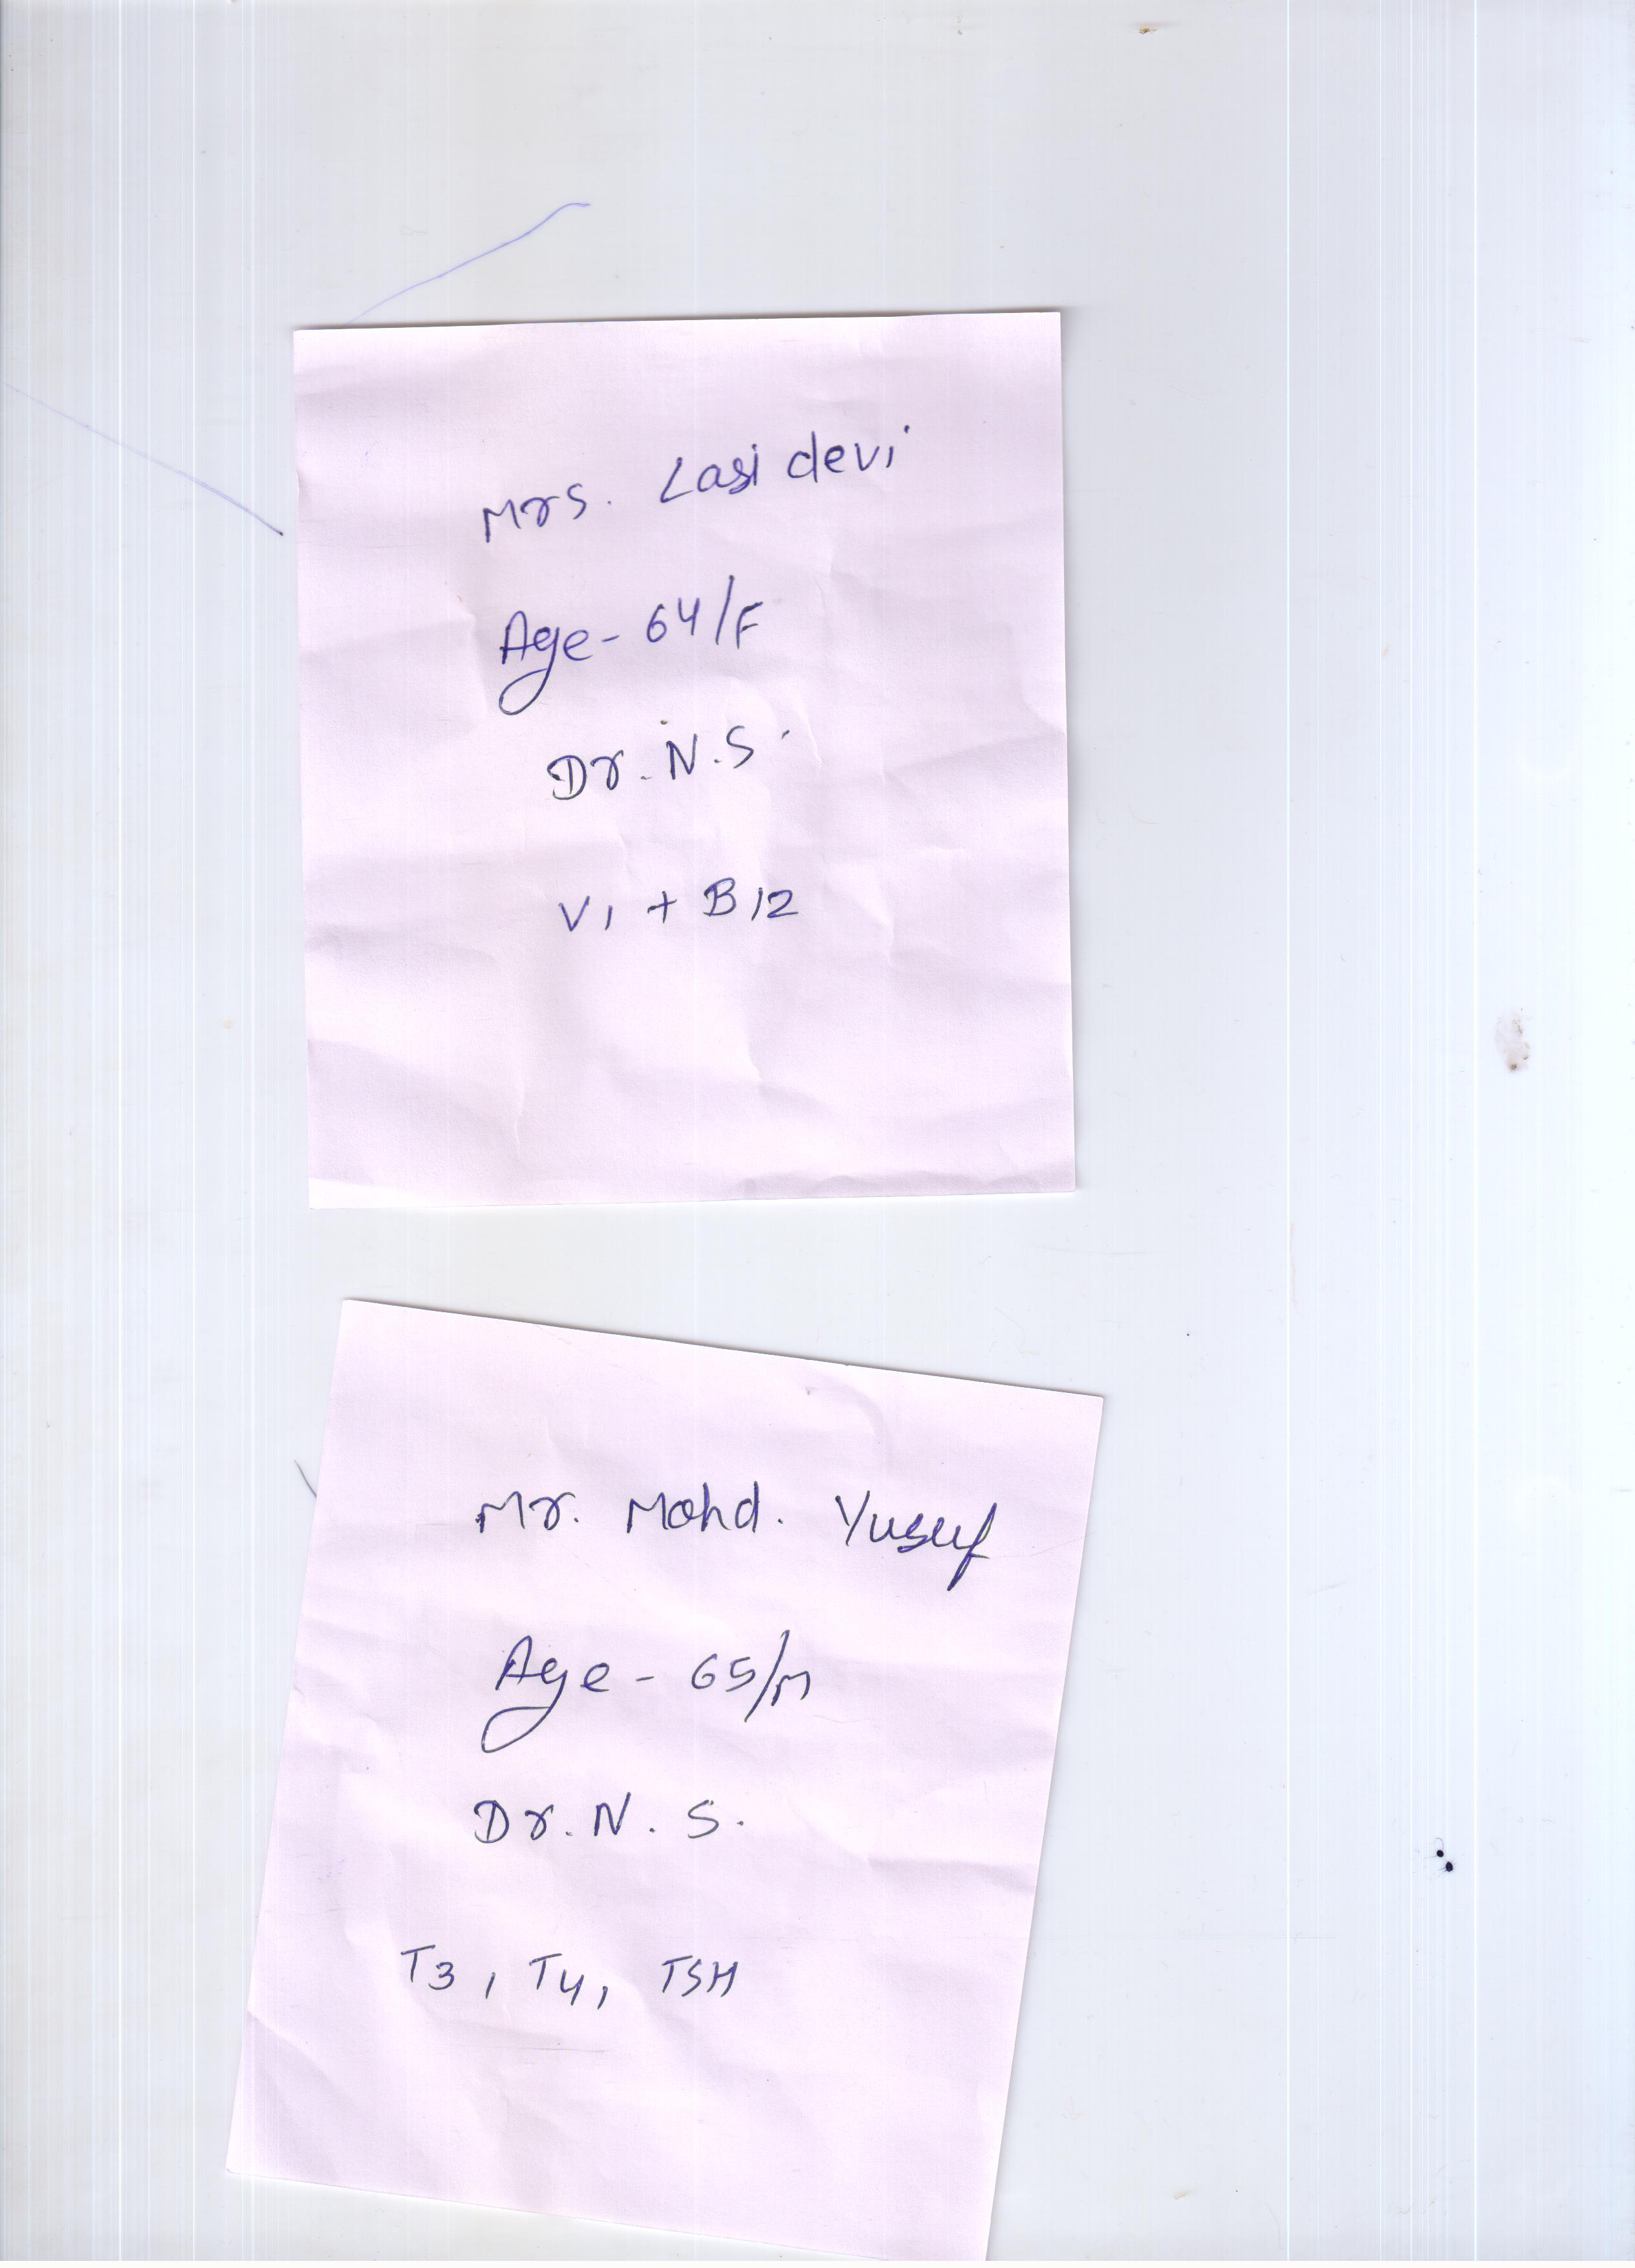 Mrs. Lasi devi
Age - 64/F
Dr. N.S.
V1 + B12
Mr. Mohd. Yusuf
Age - 65/M
Dr. N. S.
T3, T4, TSH